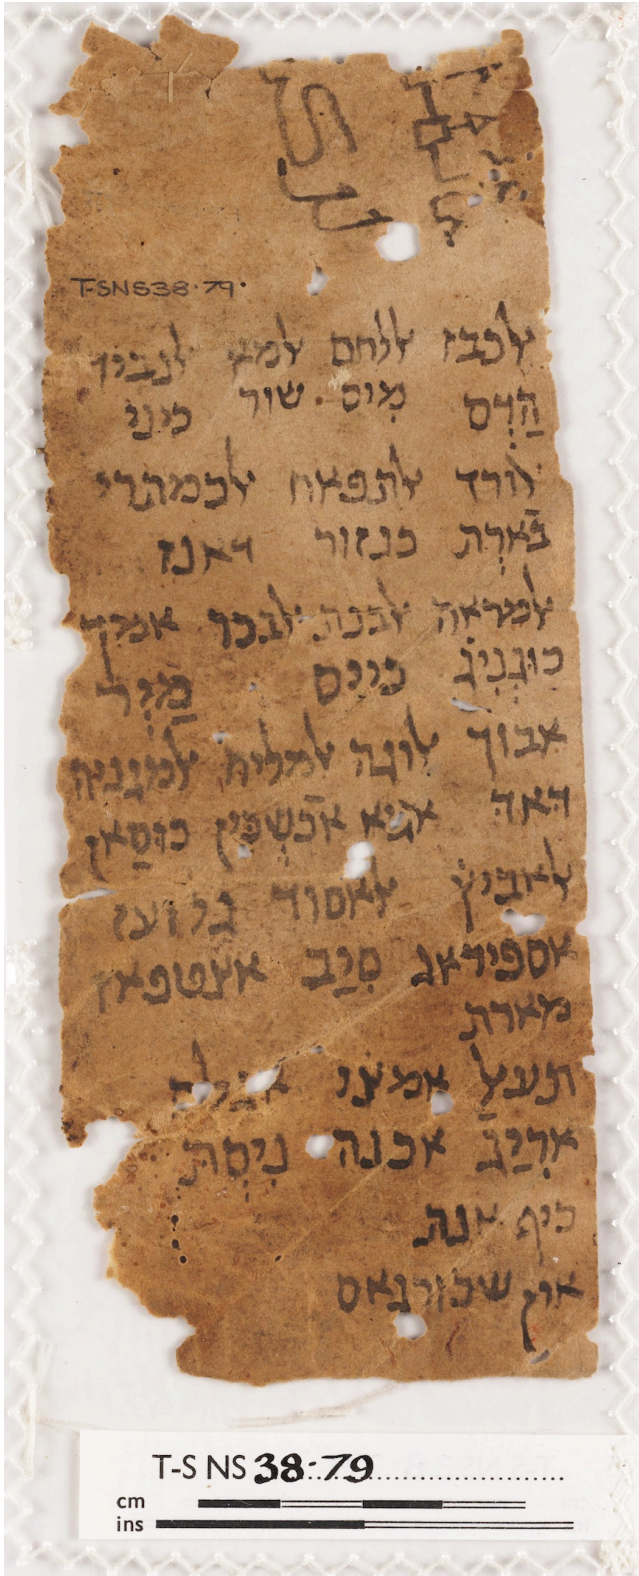 אלכבז אללחם אלמא אלנביד
הַדִס מִוס שור כיני
אלורד אלתפאח אלכמתרי
בארת כנזור דאנז
אלמראה אלבנת אלבכר אמיך
כוגניג כייס מַיִר
אבוך אלוגה אלמליח אלמגניה
האה אכשמין כוסאן
אלאביץ אלאסוד
אספידאג סיַב אצטפאן
מארת
תעאל אמצי
אריַג אכנה ניסת
כיף אנת
אוץ שכורגאס
T-S NS 38·79·
T-S NS 38·79
cm
ins